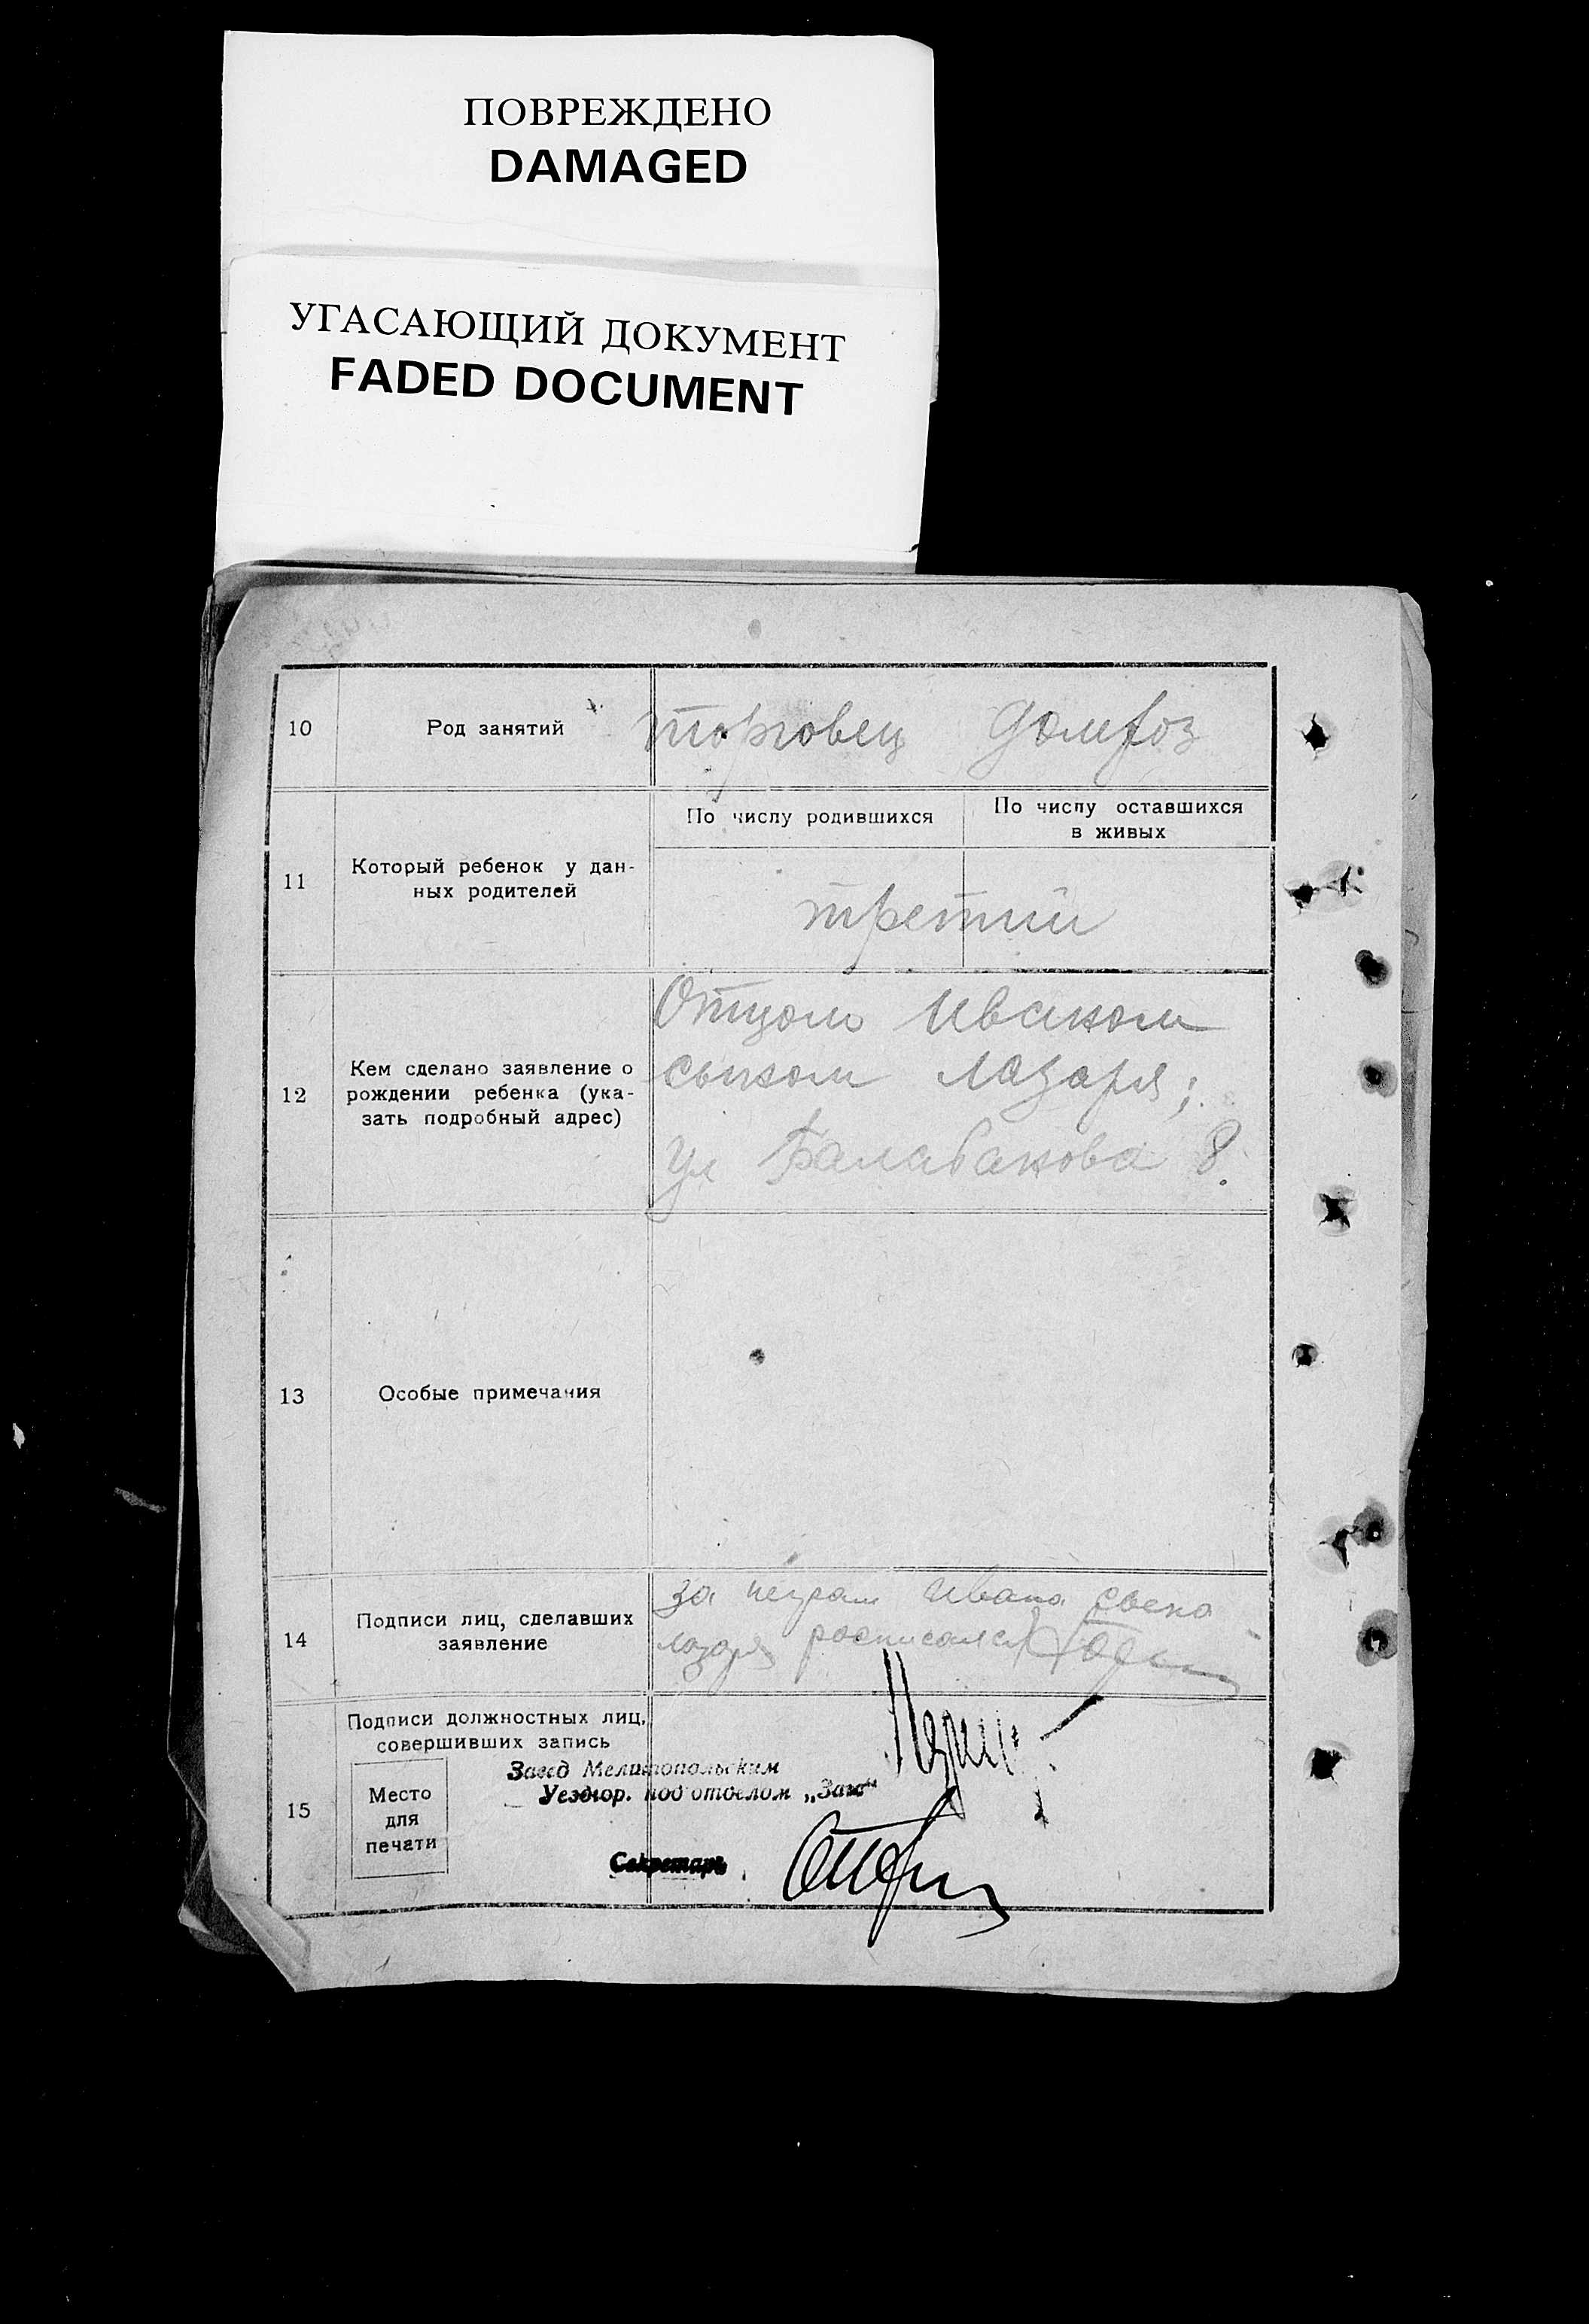 ПОВРЕЖДЕНО
DAMAGED
УГАСАЮЩИЙ ДОКУМЕНТ
FADED DOCUMENT
10 Род занятий торговец домхоз
По числу родившихся По числу оставшихся
в живых
11 Который ребенок у дан-
ных родителей
третий
12 Кем сделано заявление о
рождении ребенка (ука-
зать подробный адрес)
Отцом Иваном
сыном Лазаря;
ул Балабанова 8.
13 Особые примечания
14 Подписи лиц, сделавших
заявление
за неграм Ивана
лазаря росписался
Подписи должностных лиц,
совершивших запись
Завед Мелитопольским
Уездюр. под отделом „Загс“
15 Место
для
печати
Секретарь